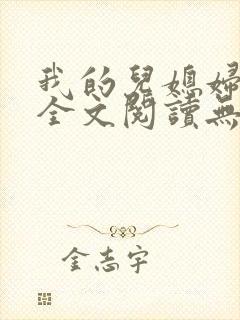 我的兒媳婦
全文閱讀無
金志宇